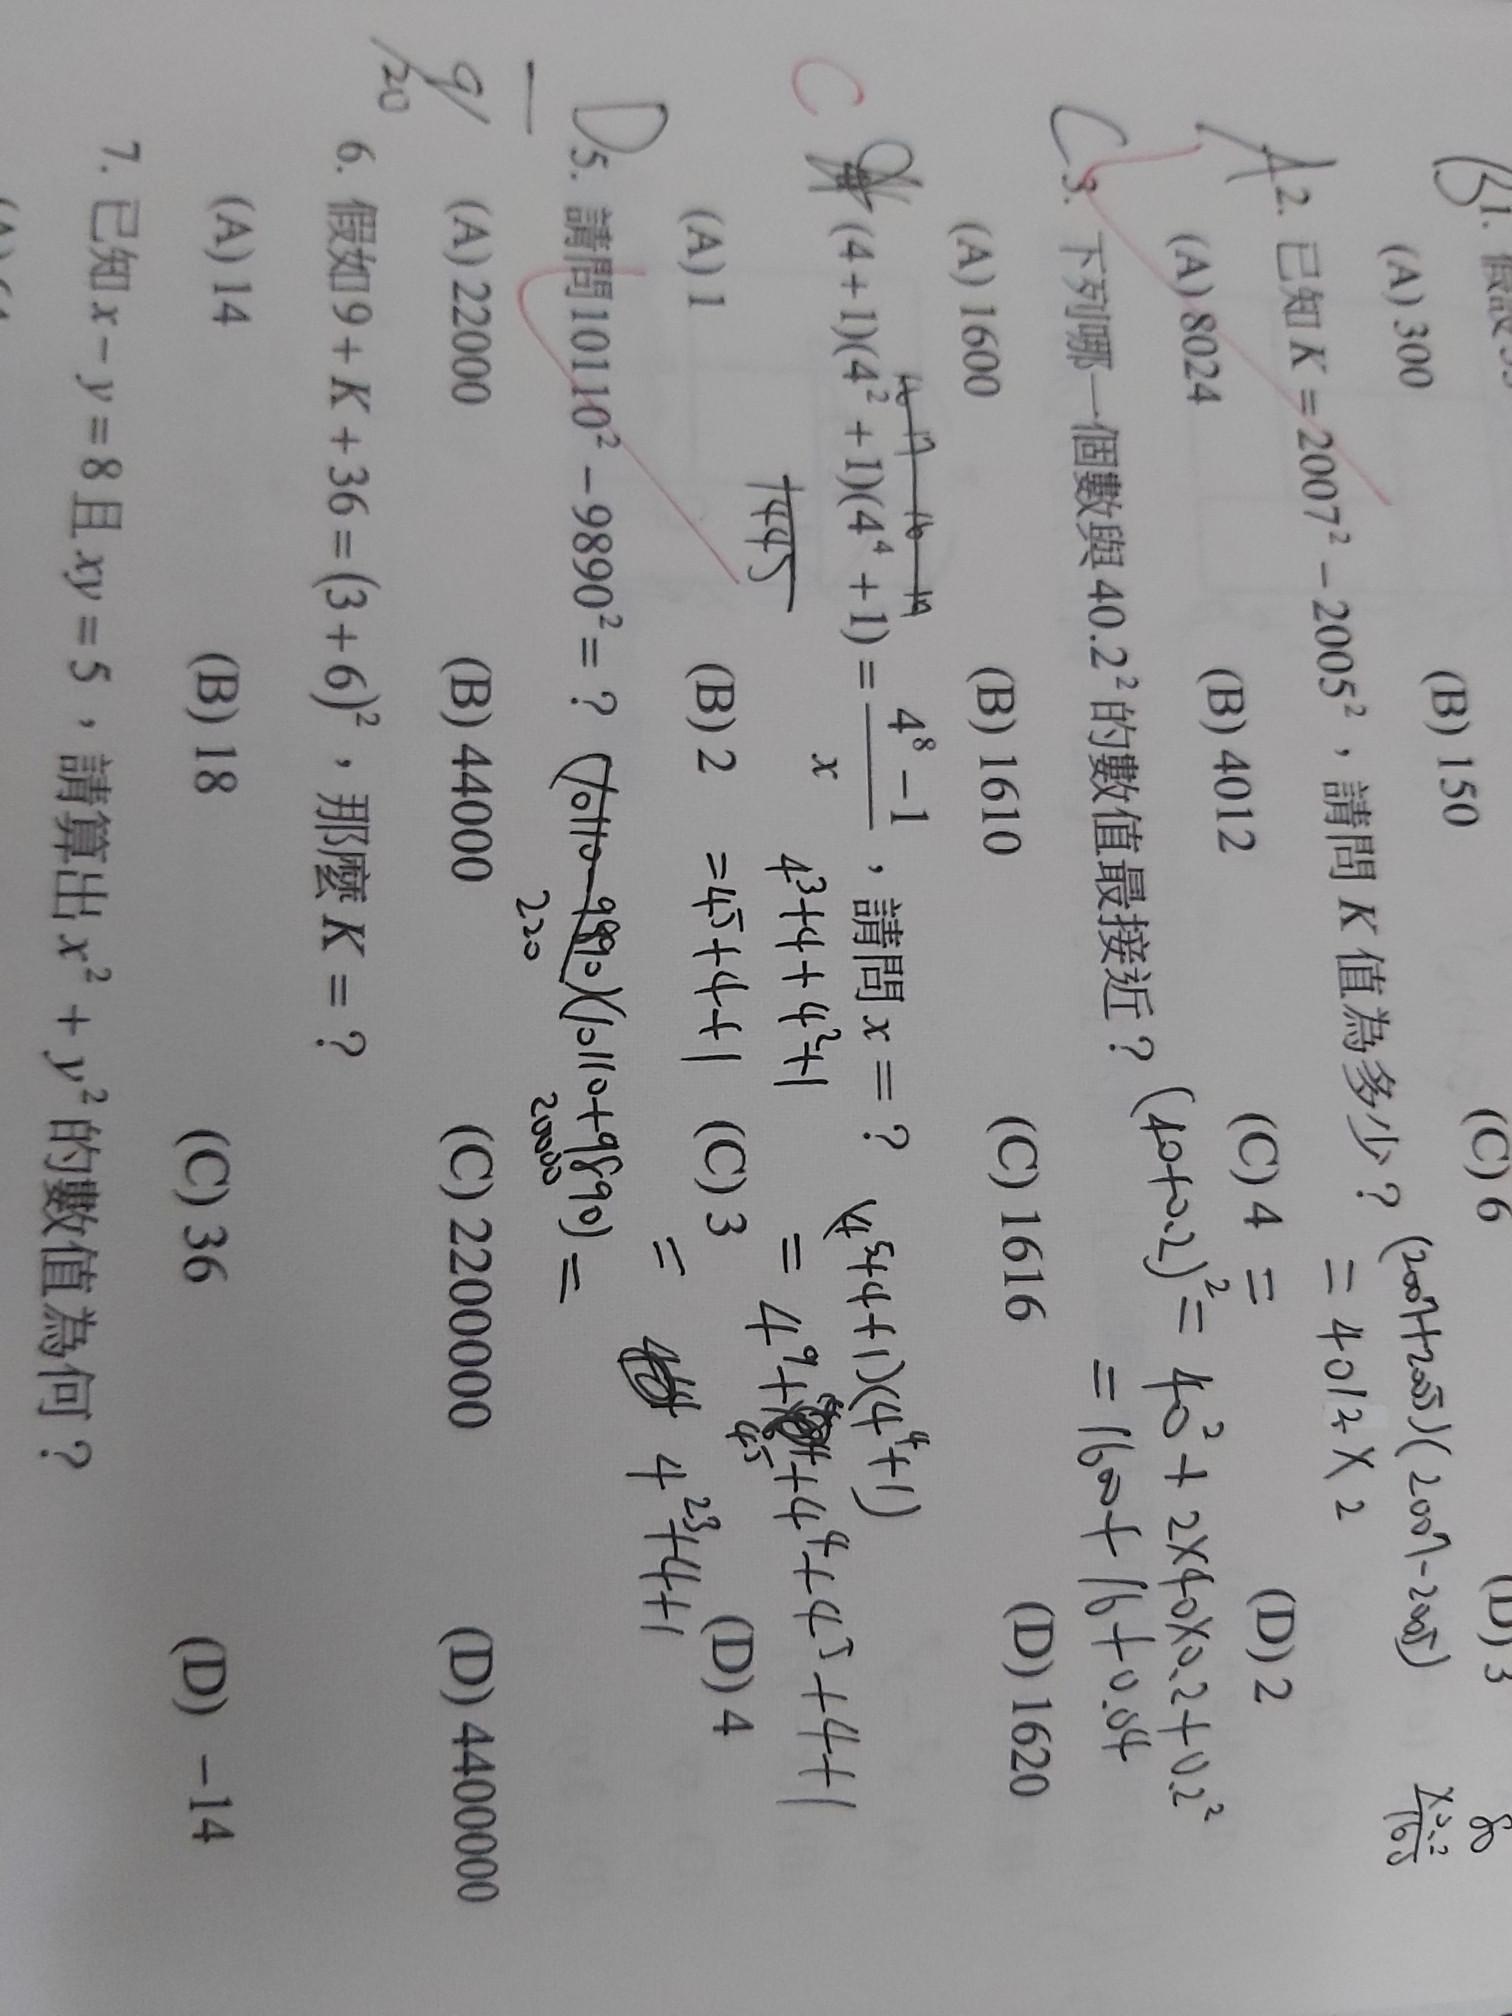 B 1.
(A) 300 (B) 150 (C) 6 (D) 3
80
A 2. 已知 K = 2007² − 2005²，請問 K 值為多少？ (2007+2005)(2007-2005)
= 4012 × 2
(A) 8024 (B) 4012 (C) 4 = (D) 2
C 3. 下列哪一個數與 40.2² 的數值最接近？ (40+0.2)² = 40² + 2×40×0.2 + 0.2²
= 1600 + 16 + 0.04
(A) 1600 (B) 1610 (C) 1616 (D) 1620
16 17 16 17
C (4+1)(4²+1)(4⁴+1) = 4⁸−1 / x ，請問 x = ？ (4⁵+4+1)(4⁴+1)
1445 4³+4+4²+1 = 4⁹+ +4⁴+4⁵+4+1
4⁵
(A) 1 (B) 2 =4⁵+4+1 (C) 3 (D) 4
= 4²³+4+1
D 5. 請問10110² − 9890² = ？ (10110-9890)(10110+9890) =
220 20000
(A) 22000 (B) 44000 (C) 2200000 (D) 4400000
9/20
6. 假如 9 + K + 36 = (3 + 6)²，那麼 K = ？
(A) 14 (B) 18 (C) 36 (D) −14
7. 已知 x − y = 8 且 xy = 5，請算出 x² + y² 的數值為何？